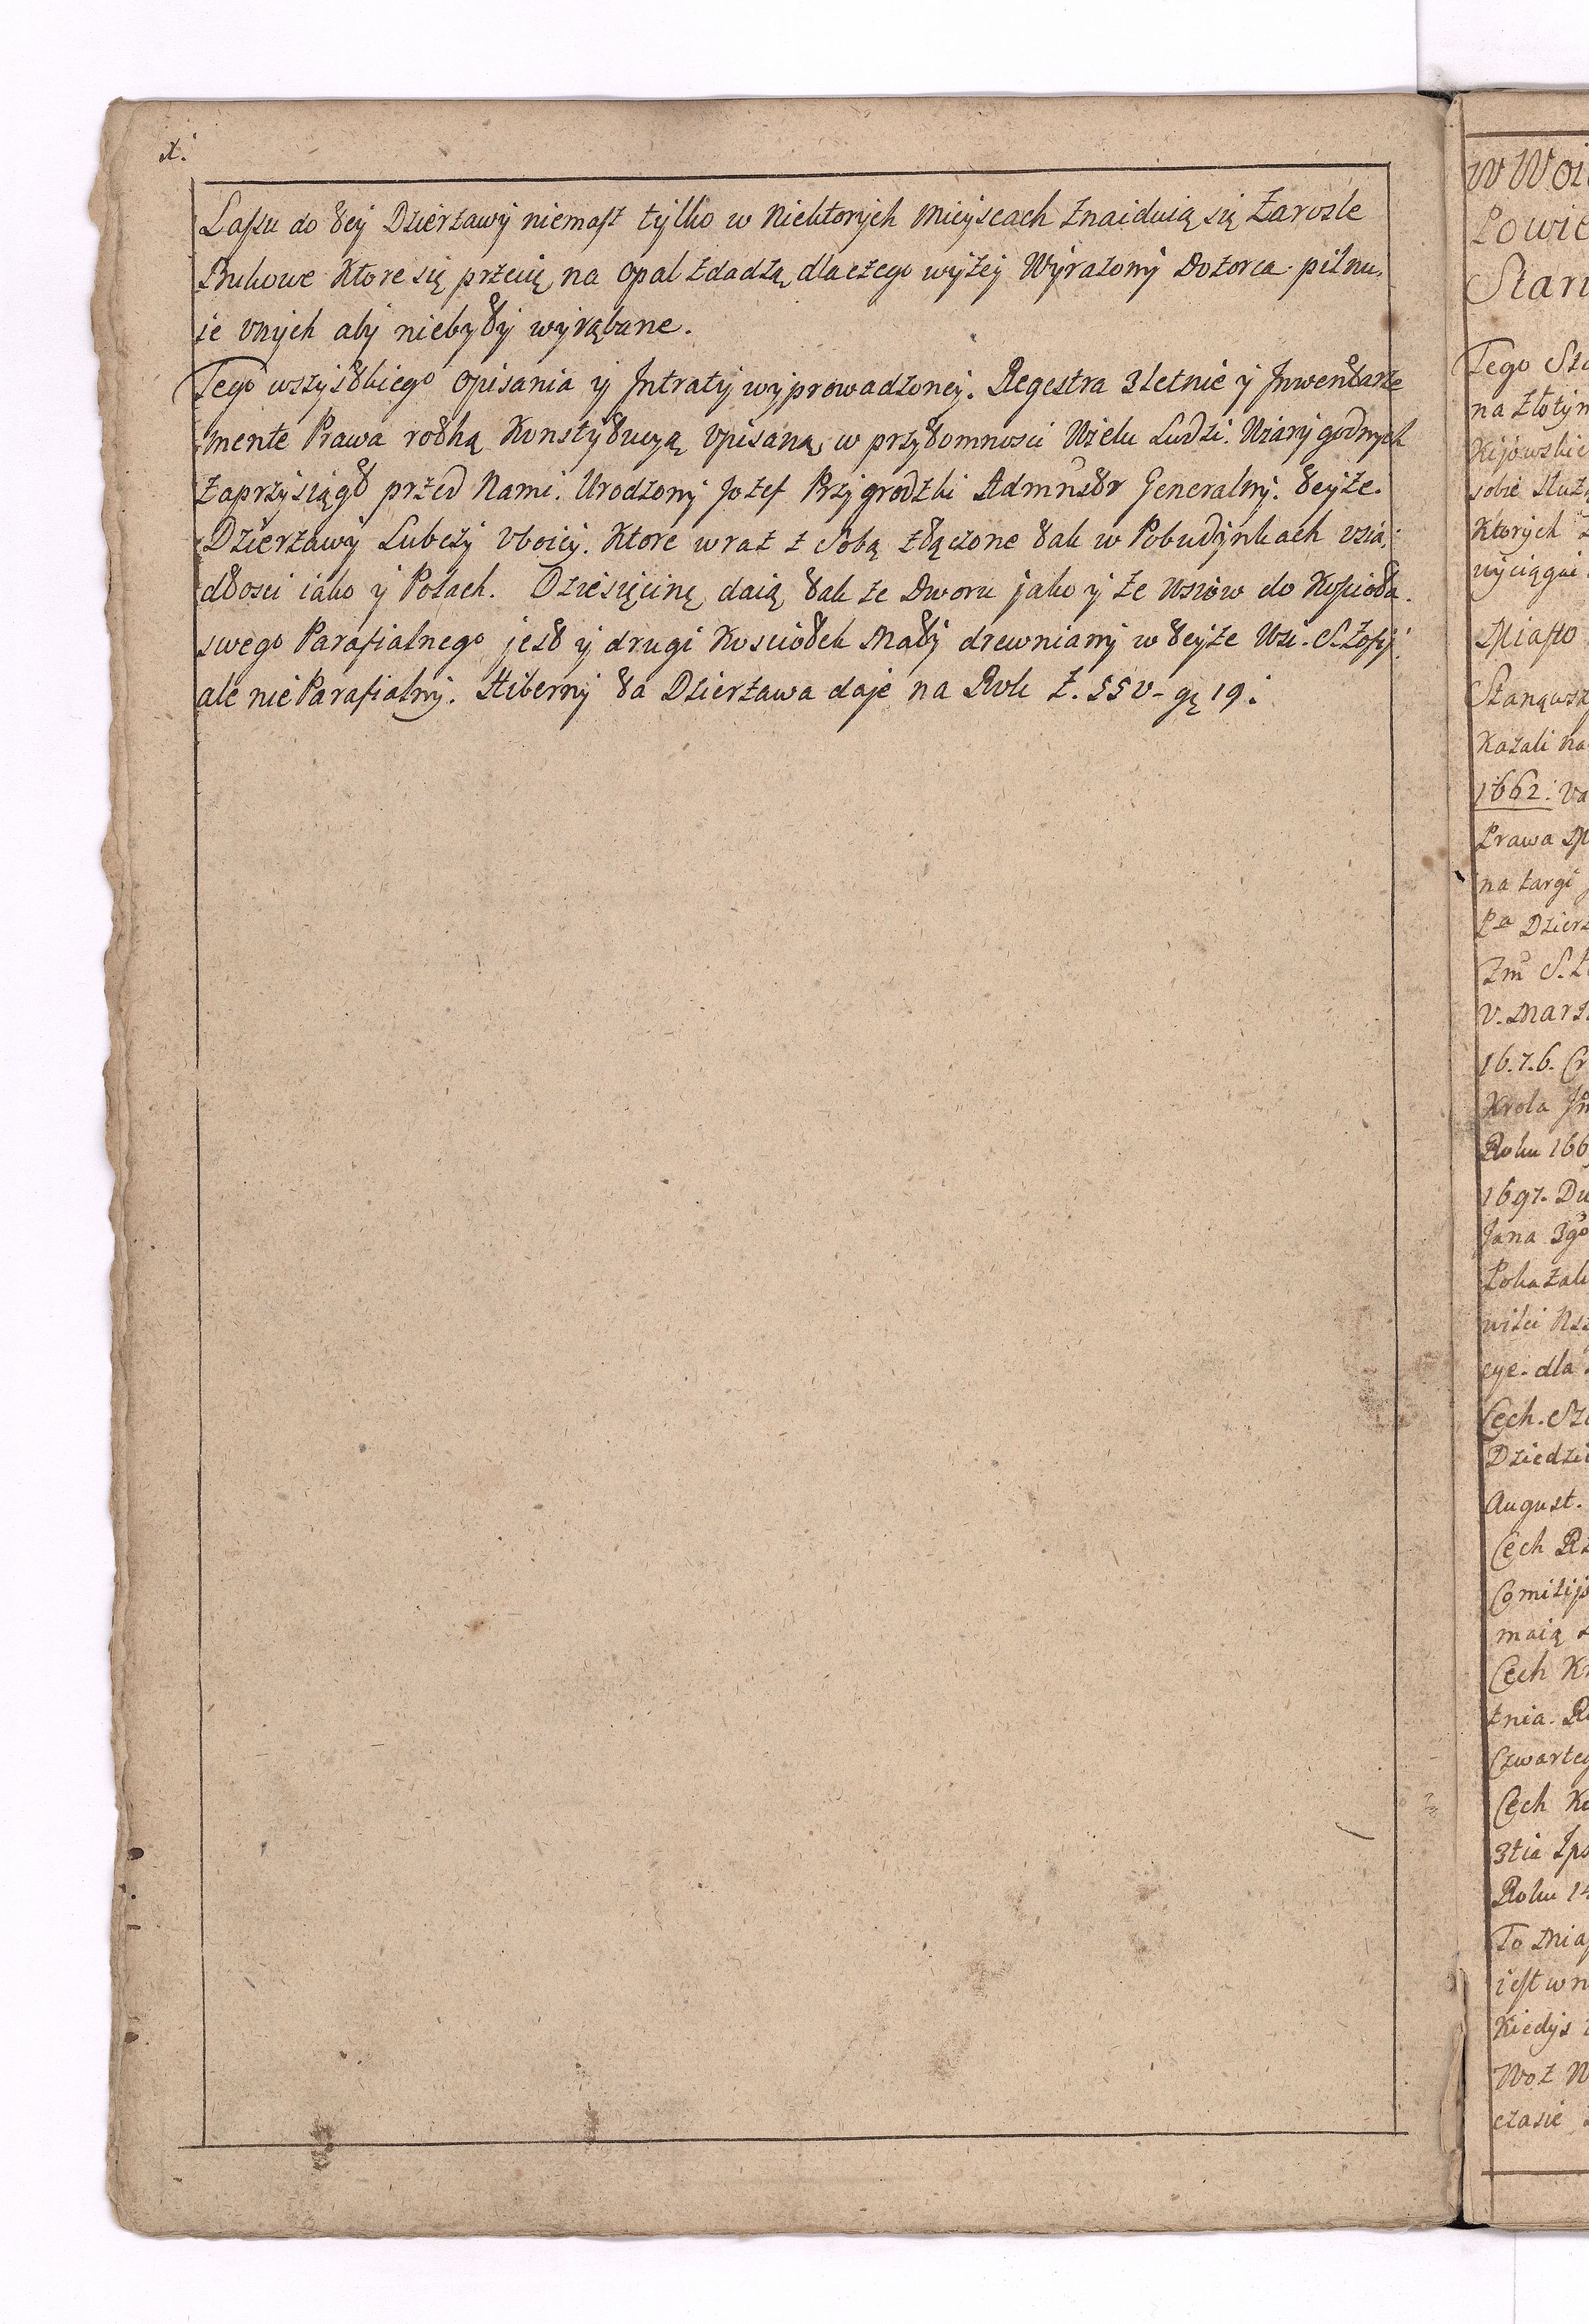 x.
Lassu do tey Dzierzawy niemasz tylko w Niektorych Mieyscach Znaiduią się Zarosle
Bukowe Ktore się przecię na opał zdadzą, dlaczego wyżey Wyrażony Dozorca pilnu,
ie vnych aby niebyły wyrąbane.
Tego wszystkiego opisania y Jntraty wyprowadzoney. Regestra 3letnie y Jnwentarze
mente Prawa rotką Konstytucyą Vpisaną, w przytomnosci Wielu Ludzi. Wiary godnych
Zaprzysiągł przed Nami. Urodzony Jozef Przygrodzki Admnstr Generalny. teyże.
Dzierzawy Lubczy Vboicy. Ktore wraz z Sobą złączone tak w Pobudynkach vsia,
dłosci iako y Polach. Dziesięcinę daią tak ze Dworu jako y ze Wsiow do Kościoła.
swego Parafialnego jest y drugi Kosciołek Mały drewniany w teyże Wsi. S. Zofij
ale nie Parafialny. Hiberny ta Dzierzawa daje na Rok Z. 550- gę 19.
w Woi
Powie
Star
Tego Sta
na złotym
Kijowskie
sobie służ
Ktorych
wyciągai
Miasto
Stanąwsz
Kazali na
1662. Va
Prawa M
na targi
Pa Dzierz
Zm S. Z
V. Marz
16.7.6. Cr
Krola Jm
Roku 166
1697. Du
Jana 3go
Pokazali
wilei Rz
cye. dla
Cech. Sz
Dziedzi
August.
Cech Rz
Comisij
maią
Cech K
tnia. R
Czwarteg
Cech K
3tia Ips
Roku 14
To Mias
iest w n
Kiedys
Woz W
czasie